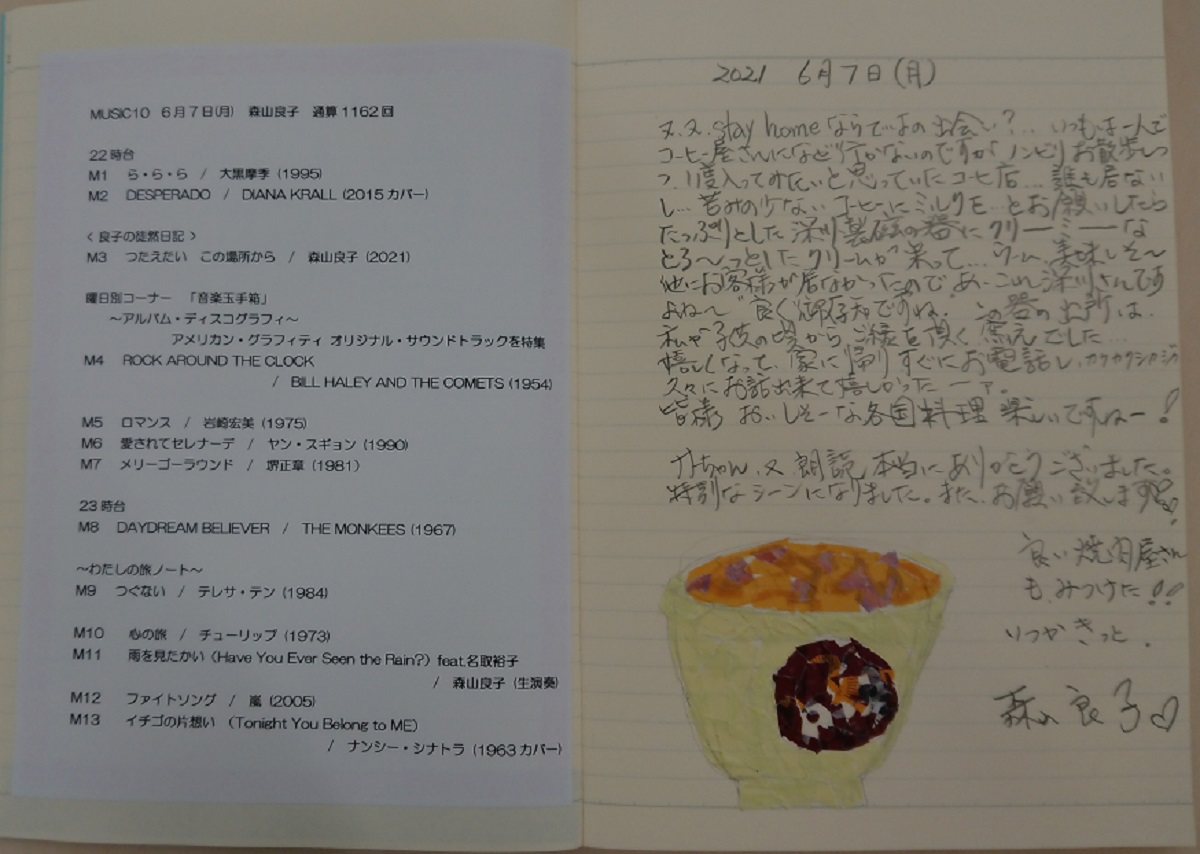 MUSIC10 6月7日(月) 森山良子 通算1162回
22時台
M1 ら・ら・ら / 大黒摩季 (1995)
M2 DESPERADO / DIANA KRALL (2015カバー)
< 良子の徒然日記 >
M3 つたえたい この場所から / 森山良子 (2021)
曜日別コーナー 「音楽玉手箱」
～アルバム・ディスコグラフィ～
アメリカン・グラフィティ オリジナル・サウンドトラックを特集
M4 ROCK AROUND THE CLOCK
/ BILL HALEY AND THE COMETS (1954)
M5 ロマンス / 岩崎宏美 (1975)
M6 愛されてセレナーデ / ヤン・スギョン (1990)
M7 メリーゴーラウンド / 堺正章 (1981)
23時台
M8 DAYDREAM BELIEVER / THE MONKEES (1967)
～わたしの旅ノート～
M9 つぐない / テレサ・テン (1984)
M10 心の旅 / チューリップ (1973)
M11 雨を見たかい〈Have You Ever Seen the Rain?〉feat.名取裕子
/ 森山良子 (生演奏)
M12 ファイトソング / 嵐 (2005)
M13 イチゴの片想い (Tonight You Belong to ME)
/ ナンシー・シナトラ (1963カバー)
2021 6月7日(月)
又.又.stay homeならではの出会い?... いつもは一人で
コーヒー屋さんになど行かないのですが ノンビリお散歩しつ
つ.1度入ってみたいと思っていたコーヒー店... 誰も居ない
し... 苦みの少ない コーヒーにミルクを...とお願いしたら
たっぷりとした 深川製磁の器に クリーミーな
とろ〜っとしたクリームが乗って... う〜ん 美味しそ〜
他にお客様が居なかったので あ、これ深川さんです
よね〜 良く御存知ですね. この器の出所は.
私が子供の頃から ご縁を頂く 窯元でした...
嬉しくなって、家に帰りすぐにお電話し、カクカクシカジカ
久々にお話出来て嬉しかったーァ。
皆様 おいしそーな各国料理 楽しいですねー!
ちゃん、又 朗読 本当にありがとうございました。
特別なシーンになりました。また、お願い致します♡!
良い焼肉屋さん
も、みつけた!!
いつか きっと.
森山良子♡